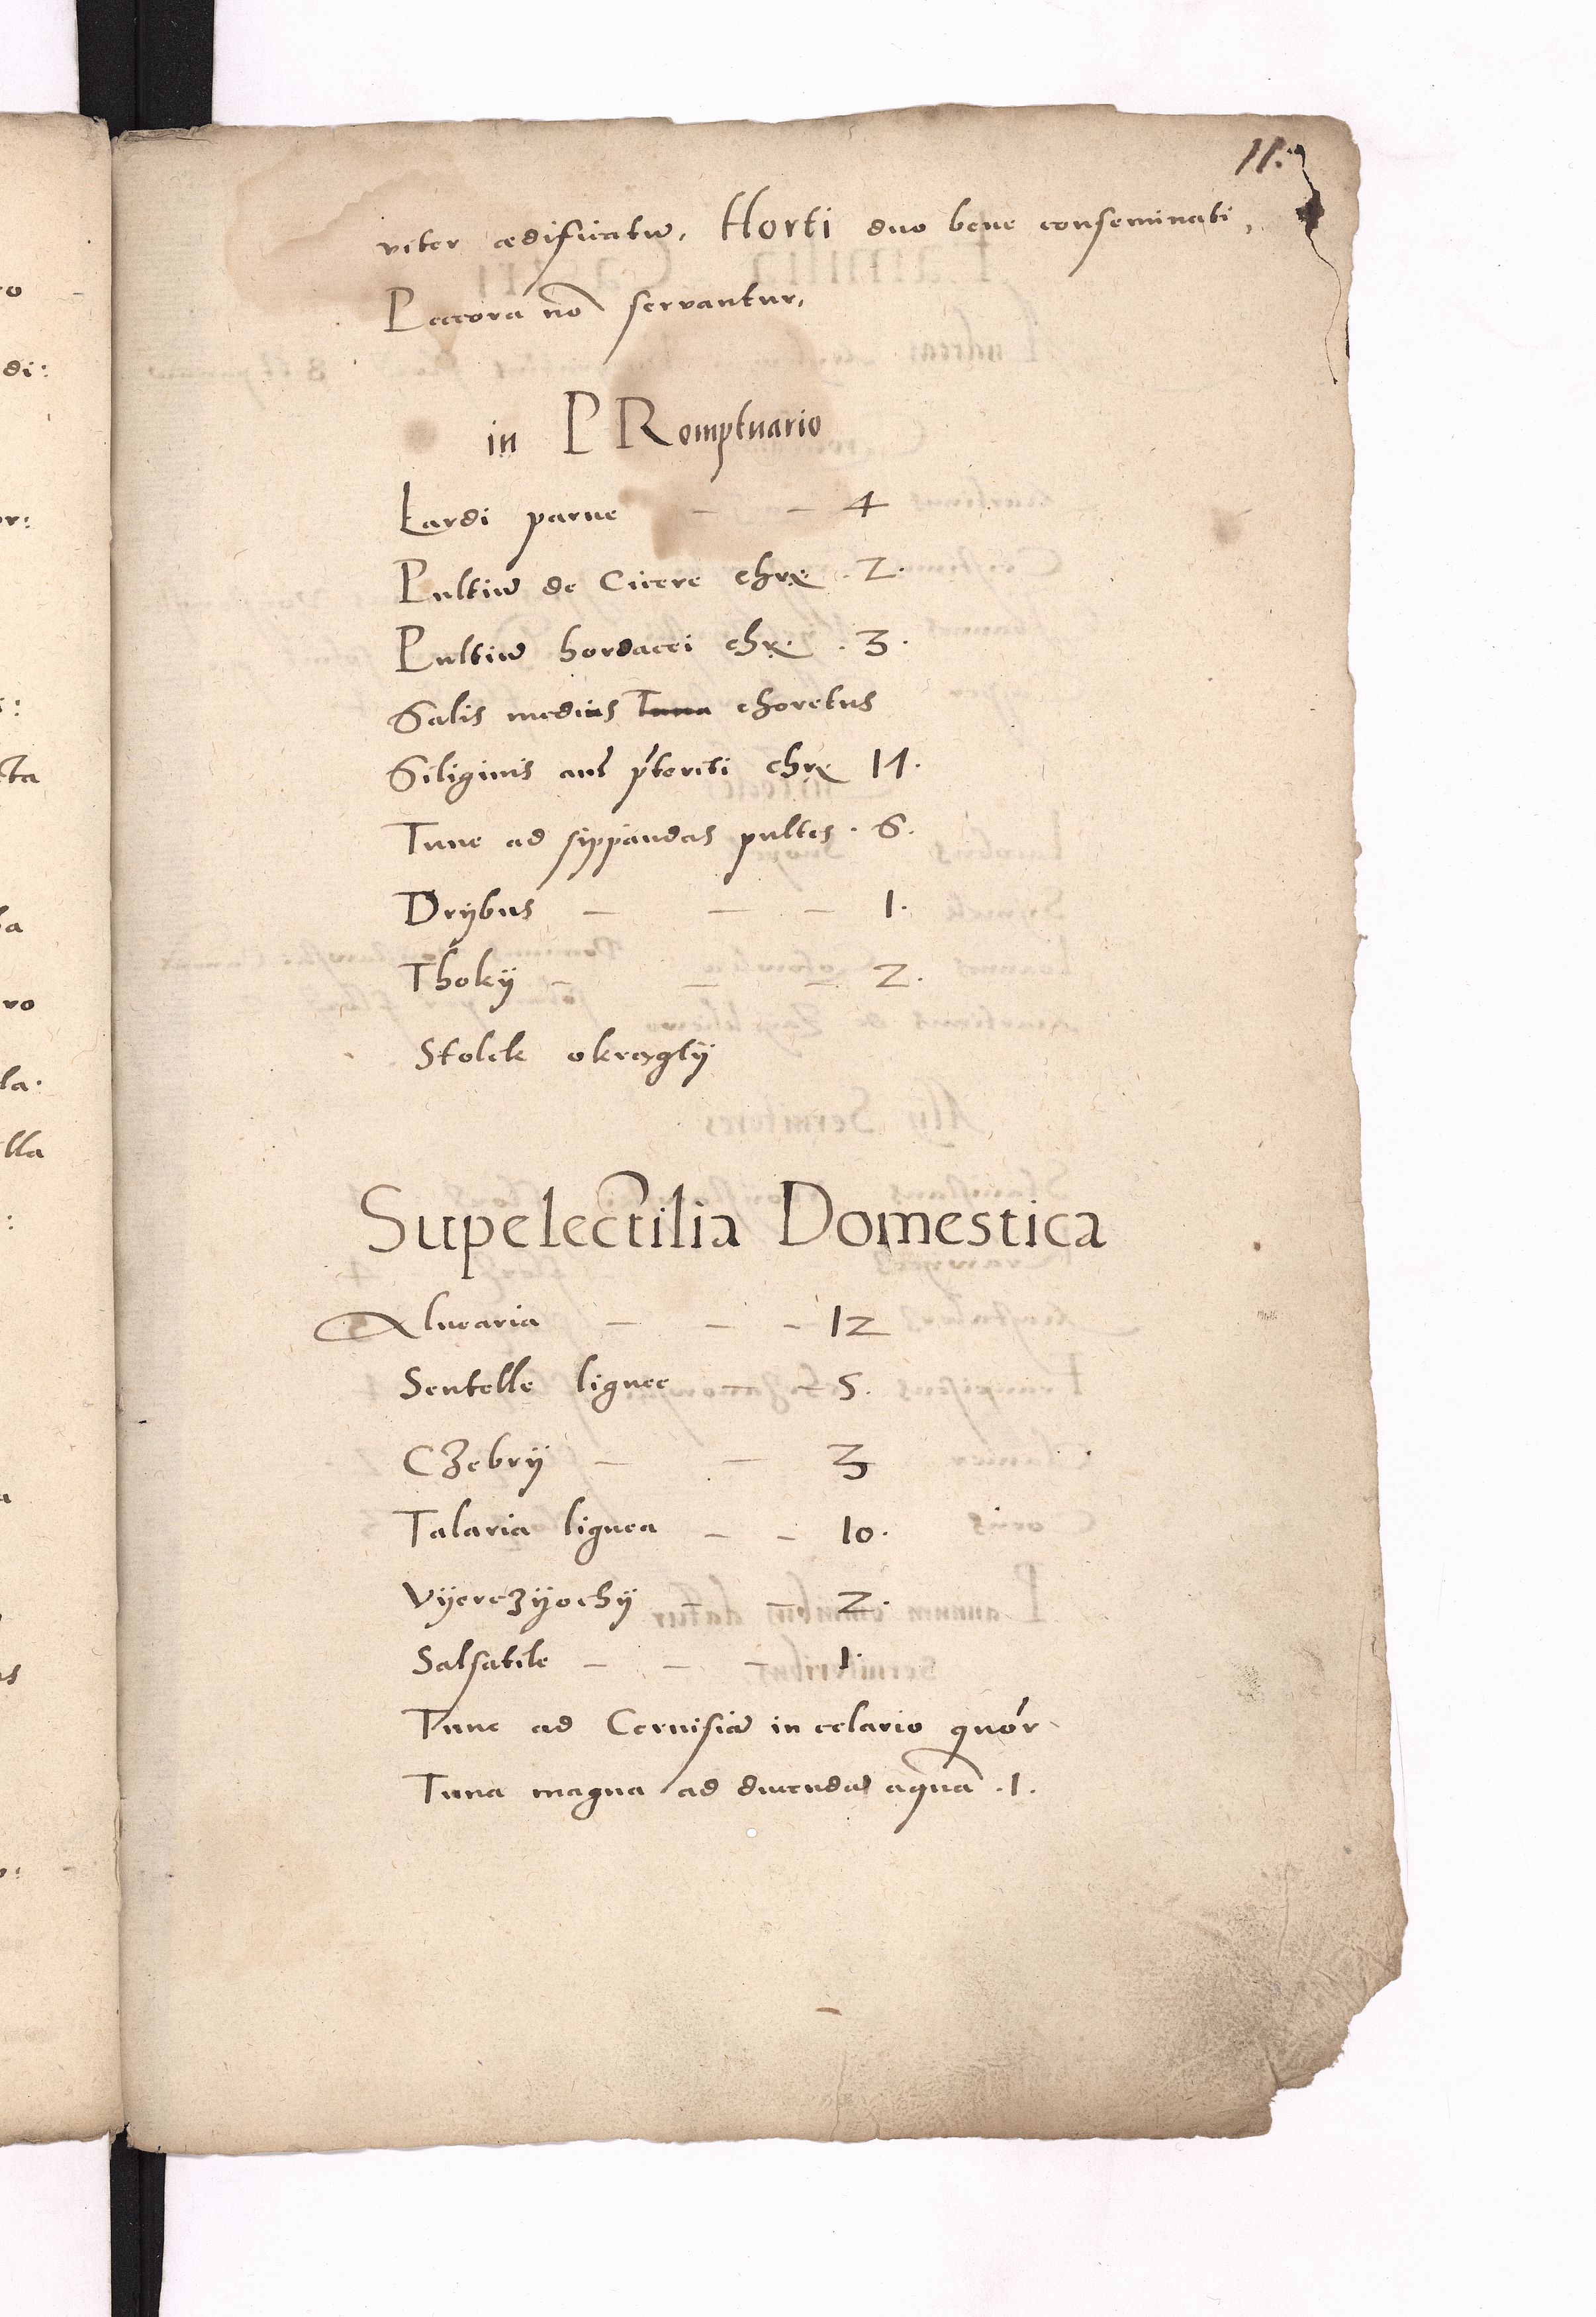 11.
viter ædificatū, Horti duo bene conseminati,
Peccora nō servantur,
in PRomptuario
Lardi parue - - 4
Pultiū de Cicere chrꝭ . 2.
Pultiū hordacei chrꝭ . 3.
Salis medius Tuna choretus
Siliginis añt p̃teriti chrꝭ 14.
Tune ad sippandas pultes . 6.
Drÿbus - - - 1.
Thokÿ - - - 2.
Stolek okrągłÿ
Supelectilia Domestica
Aluearia - - - 12
Scutelle lignee - - 5.
CZebrÿ - - 3
Talaria lignea - - 10.
Vÿerczÿochÿ - - 2.
Salsatile - - - 1.
Tune ad Ceruisiā in celario quór
Tuna magna ad ducendā aquā . 1.